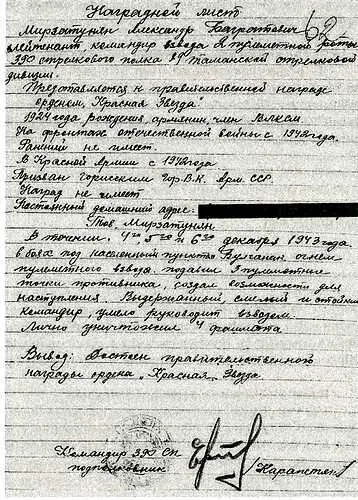 Наградной лист
62
Мирзатунян Александр Багратович
лейтенант командир взвода 2 пулеметной роты
390 стрелкового полка 89 Таманской стрелковой
дивизии.
Представляется к правительственной награде
орденом, Красная Звезда"
1924 года рождения, армянин, член ВЛКСМ
На фронтах отечественной войны с 1942 года.
Ранний не имеет.
В Красной Армии с 1942 года
Призван горисским Гор.В.К. Арм. ССР.
Наград не имеет
Постоянный домашний адрес:
Тов. Мирзатунян
В течении 4го 5го и 6го декабря 1943 года
в боях под населенный пункта Булганак огнем
пулеметного взвода подавил 3 пулеметные
точки противника, создал возможность для
наступления. Выдержанный, смелый и стойкий
командир, умело руководит взводом.
Лично уничтожил 4 фашиста
Вывод: Достоен правительственного
награды ордена „Красная Звезда
Командир 390 СП
подполковник
/Карапетян/